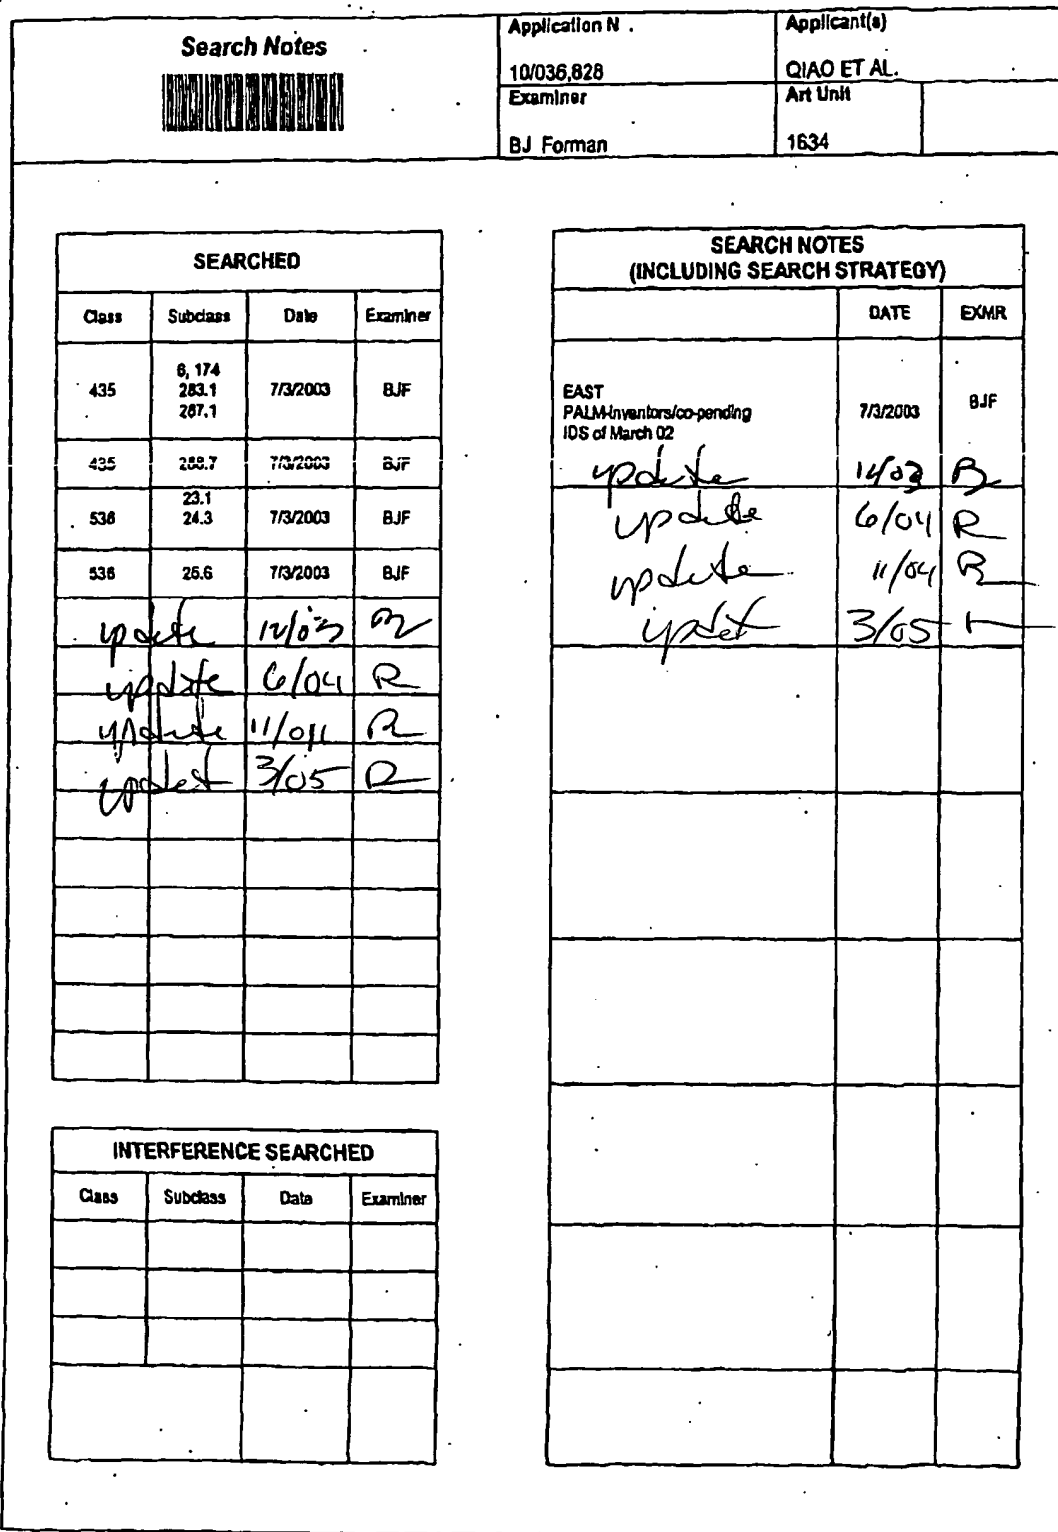 Search Notes
Application N .
Applicant(s)
10/036,828
QIAO ET AL.
Examiner
Art Unit
BJ Forman
1634
SEARCHED
Class Subclass Date Examiner
435 6, 174 283.1 287.1 7/3/2003 BJF
435 288.7 7/3/2003 BJF
536 23.1 24.3 7/3/2003 BJF
536 25.6 7/3/2003 BJF
update 12/03
update 6/04 R
update 11/04 R
updet 3/05 R
INTERFERENCE SEARCHED
Class Subclass Date Examiner
SEARCH NOTES
(INCLUDING SEARCH STRATEGY)
DATE EXMR
EAST
PALM-inventors/co-pending
IDS of March 02
7/3/2003 BJF
update 12/03
update 6/04 R
update 11/04 R
updet 3/05